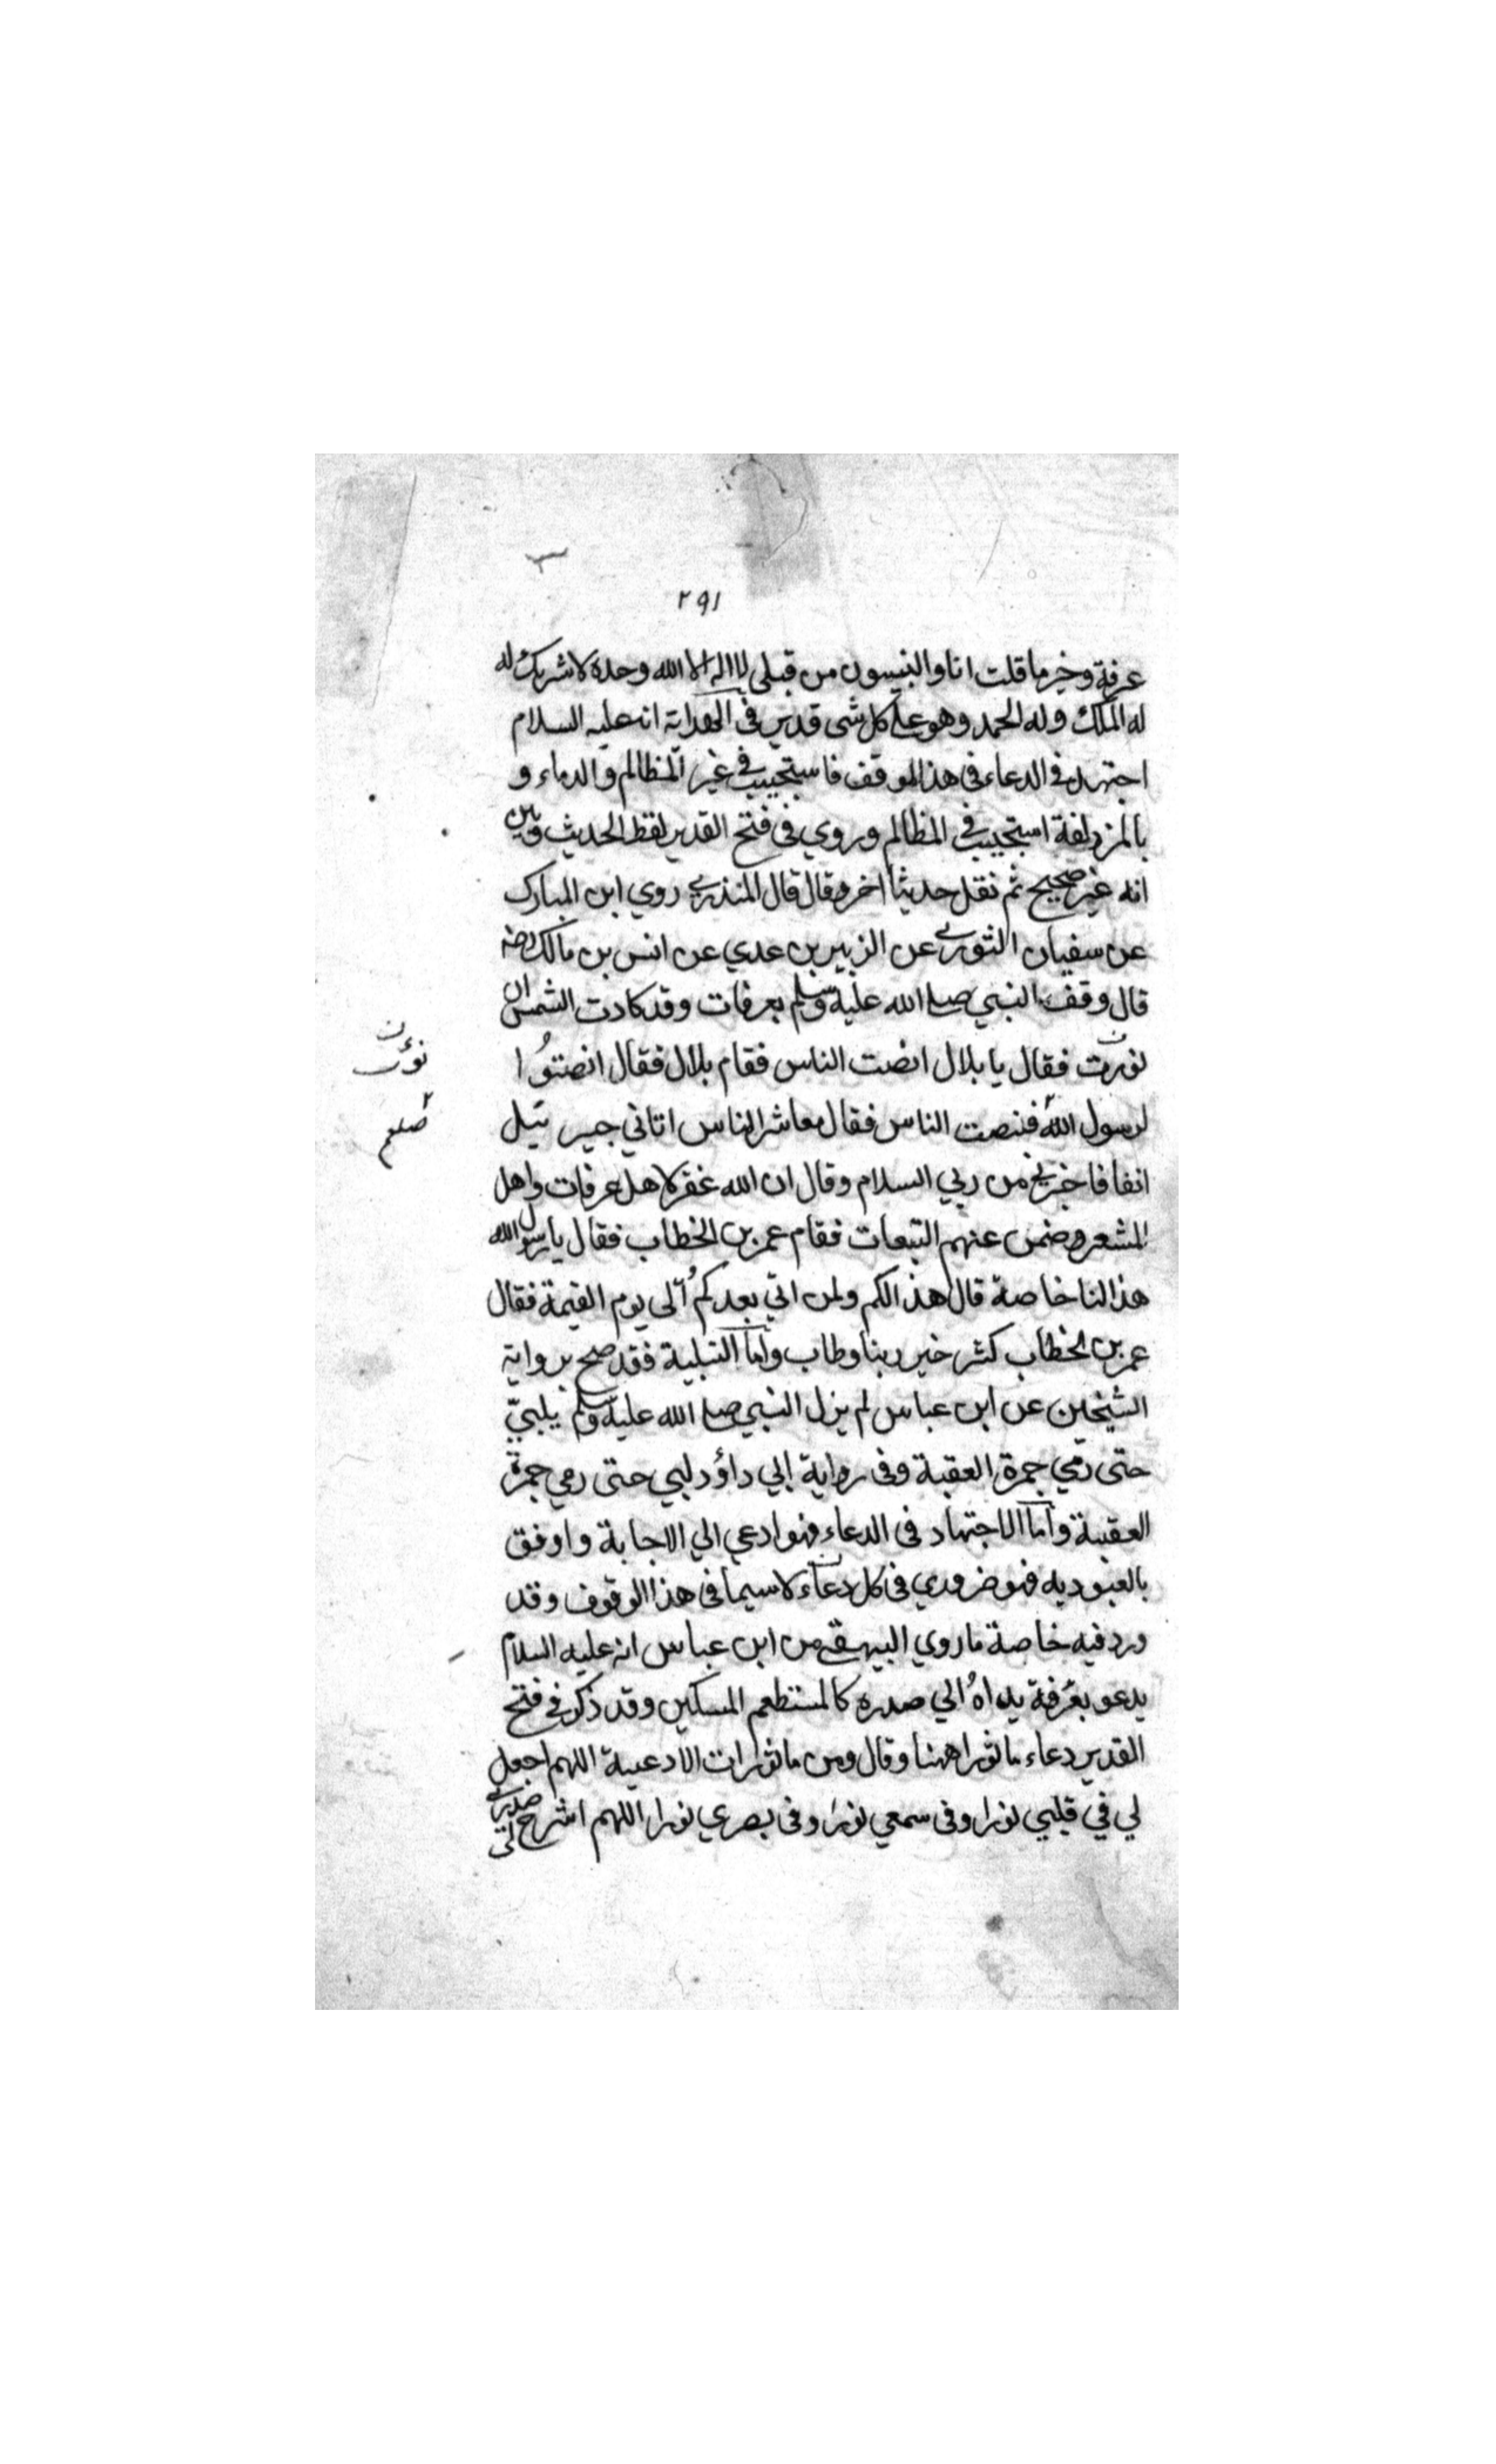 ٢٩١
عرفة وخير ما قلت انا والنبيون من قبلي لا اله الا الله وحده لا شريك له
له الملك وله الحمد وهو على كل شى قدير فى الهداية انه عليه السلام
اجتهد في الدعاء فى هذا الموقف فاستجيب في غير المظالم والدماء و
بالمزدلفة استجيب في المظالم وروي فى فتح القدير لفظ الحديث وبين
انه غير صحيح ثم نقل حديثا اخر وقال قال المنذري روي ابن المبارك
عن سفيان الثوري عن الزبير بن عدي عن انس بن مالك رضه
قال وقف النبي صلى الله عليه وسلم بعرفات وقد كادت الشمس ان
فقال يا بلال انصت الناس فقام بلال فقال انصتوا
لرسول الله فنصت الناس فقال معاشر الناس اتاني جبرئيل
انفا فاخبرني من ربي السلام وقال ان الله غفر لاهل عرفات واهل
المشعر وضمن عنهم التبعات فقام عمر بن الخطاب فقال يا رسول الله
هذا لنا خاصة قال هذا لكم ولمن اتي بعدكم الى يوم القيمة فقال
عمر بن الخطاب كثر خير ربنا وطاب واما التلبية فقد صح برواية
الشيخين عن ابن عباس لم يزل النبي صلى الله عليه وسلم يلبي
حتى رمي جمرة العقبة وفى رواية ابي داؤد لبي حتى رمي جمرة
العقبة واما الاجتهاد فى الدعاء فهو ادعي الي الاجابة واوفق
بالعبوديه فهو ضروري فى كل دعاء لا سيما فى هذا الوقوف وقد
ورد فيه خاصة ما روي البيهقي من ابن عباس انه عليه السلام
يدعو بعرفة يداه الي صدره كالمستطعم المسكين وقد ذكر في فتح
القدير دعاء ماثورا ههنا وقال ومن ماثورات الادعية اللهم اجعل
لي في قلبي نورا وفى سمعي نورا وفى بصري نورا اللهم اشرح لى صدري
صلعم